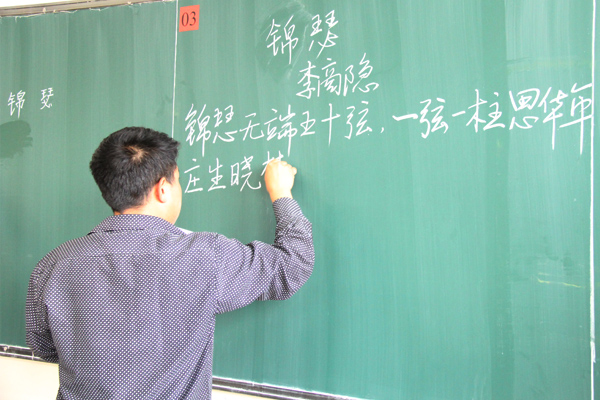 03
锦瑟
锦瑟
李商隐
锦瑟无端五十弦,一弦一柱思华年
庄生晓